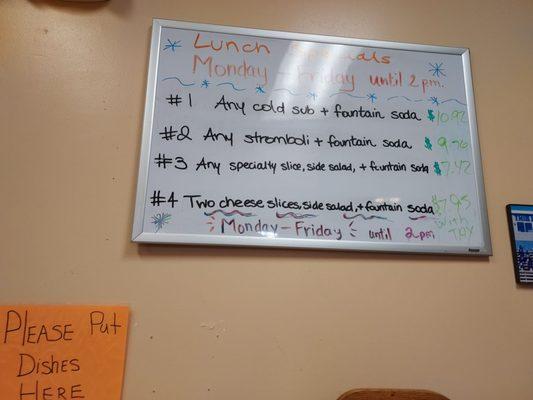 Lunch Specials
Monday - Friday until 2 pm.
#1 Any cold sub + fountain soda $10.92
#2 Any stromboli + fountain soda $9.76
#3 Any specialty slice, side salad, + fountain soda $7.42
#4 Two cheese slices, side salad, + fountain soda $7.95
with
TAX
Monday - Friday until 2pm
PLEASE Put
Dishes
HERE